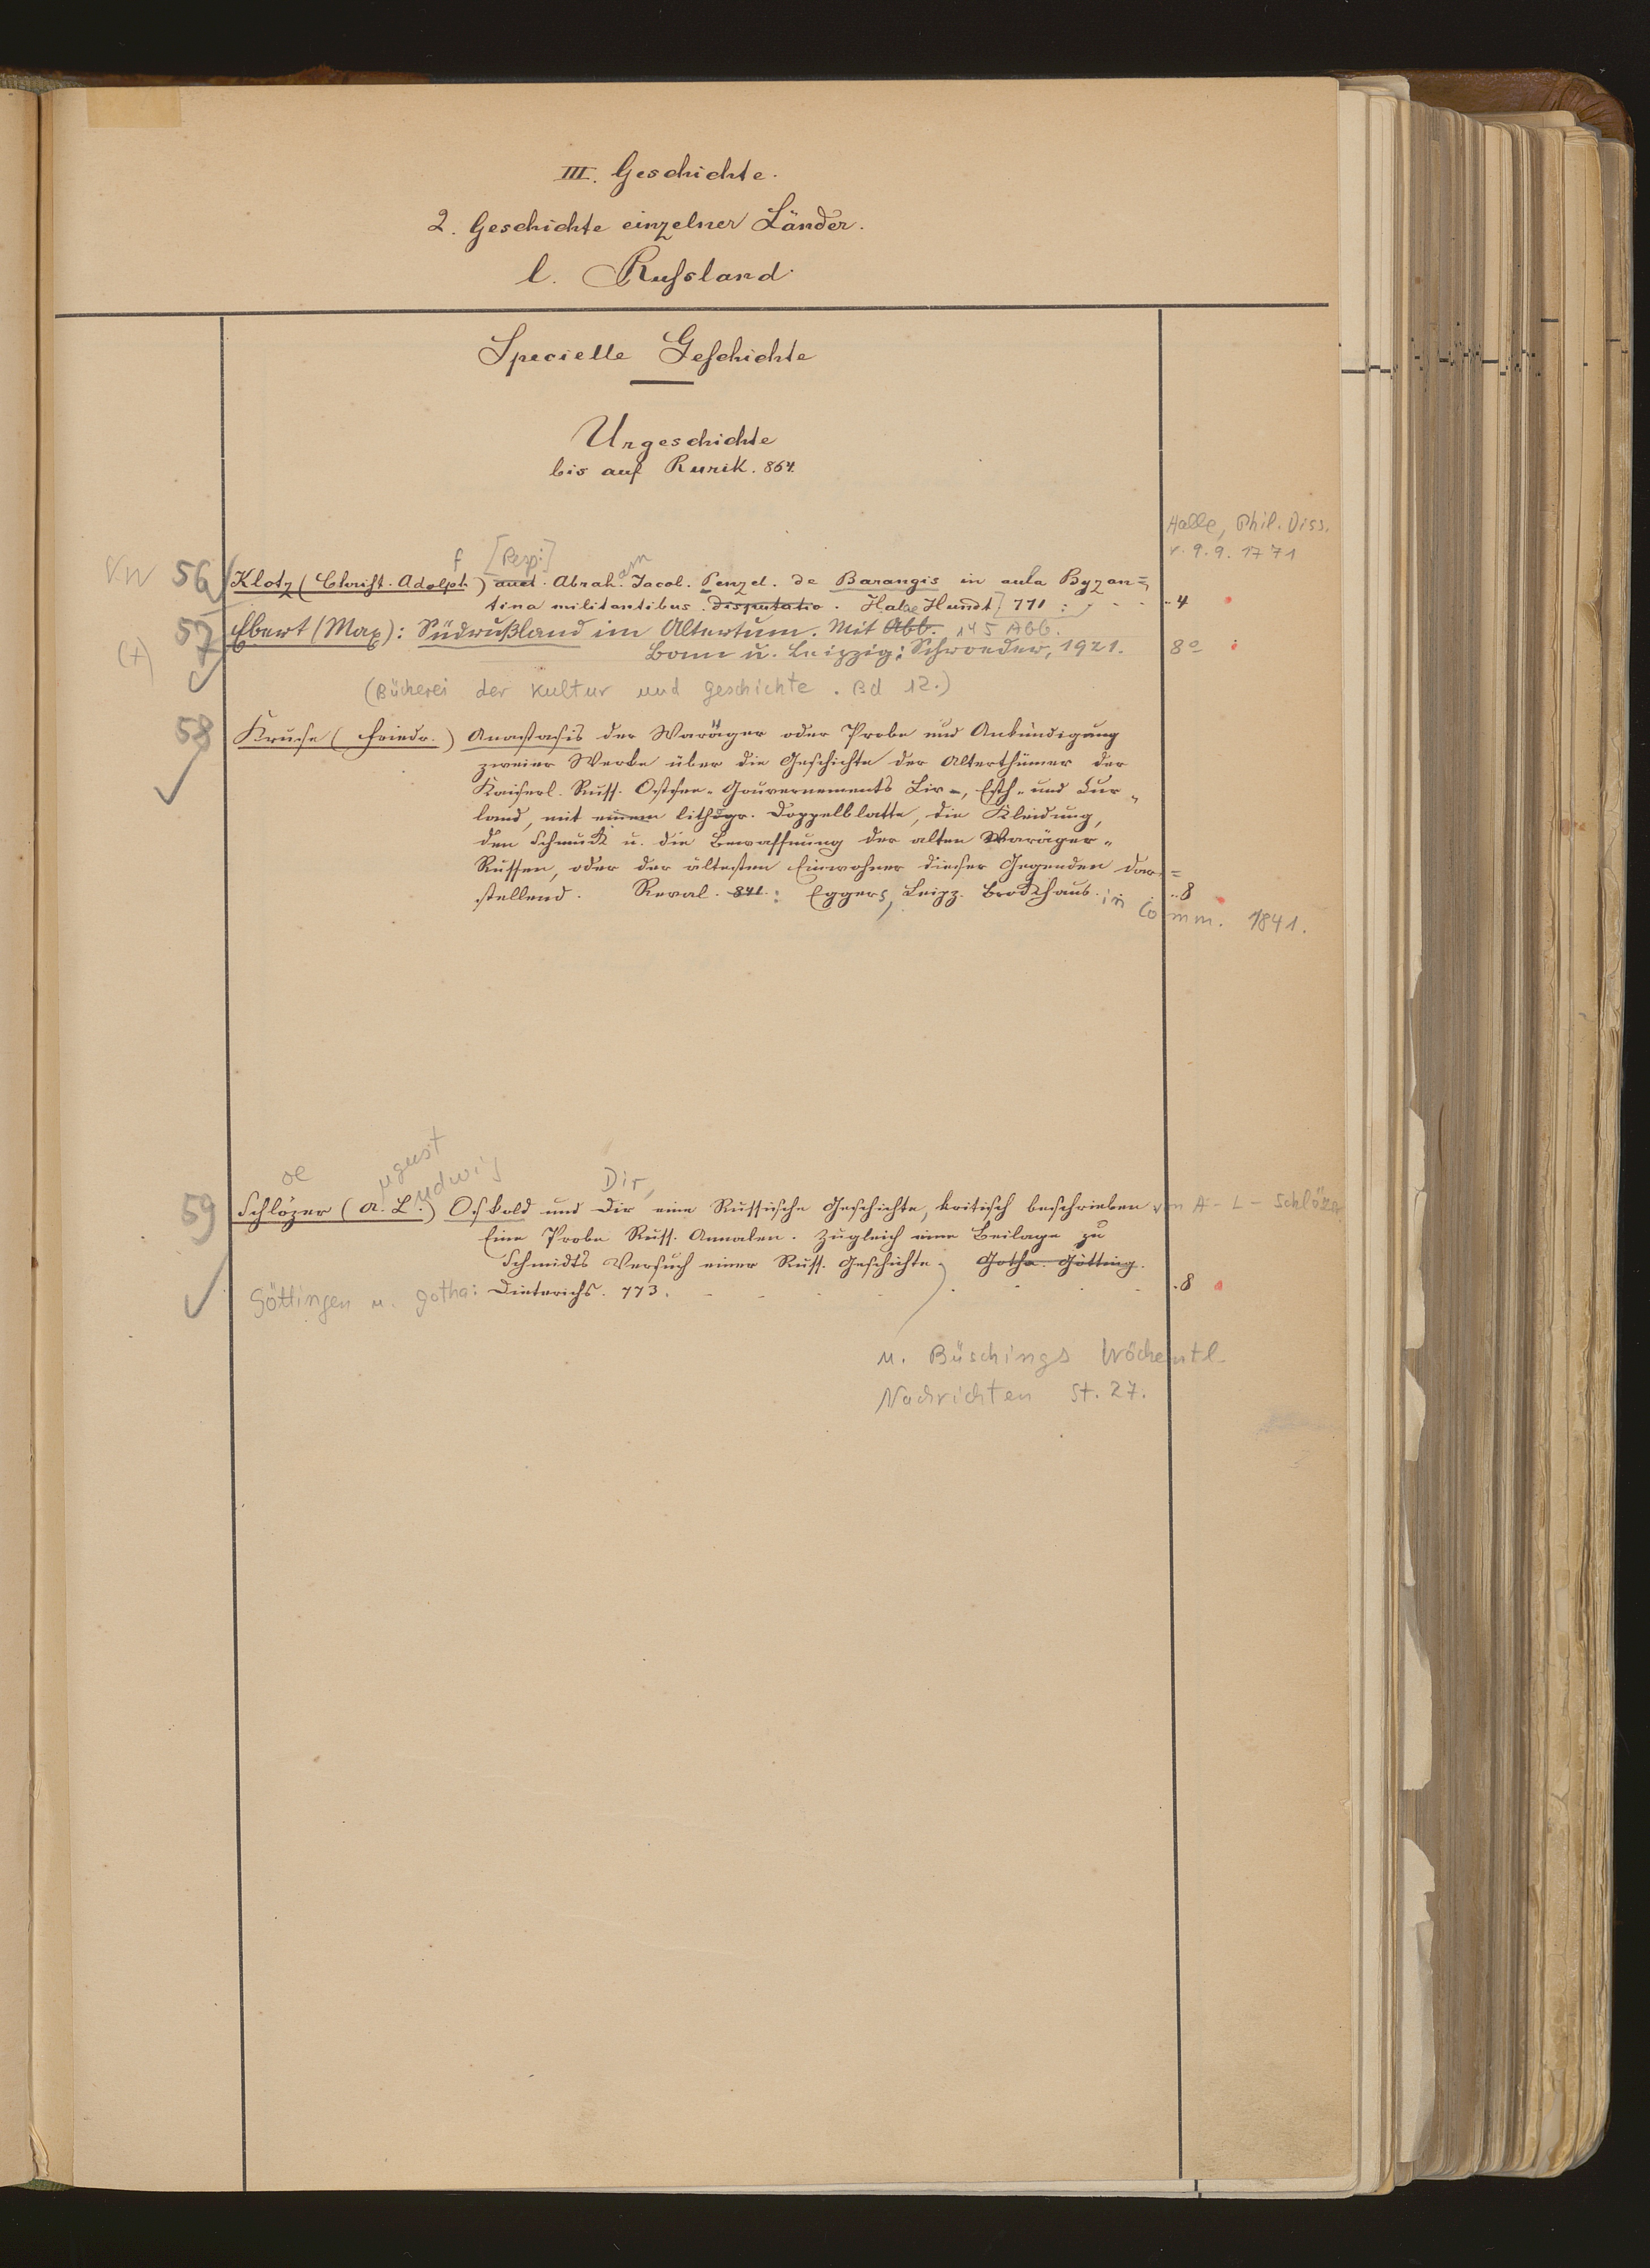 III. Geschichte.
2. Geschichte einzelner Länder.
l. Russland.
Specielle Geschichte
Urgeschichte
bis auf Rurik. 864.
Halle, Phil. Diss.
v. 9.9.1771
f [Resp:] am
56 Klotz (Christ. Adolph.) auct. Abrah. Jacob. Penzel. de Barangis in aula Byzan=
tina militantibus. Disputatio. Halae Hundt] 771: 4
57 Ebert (Max): Südrußland im Altertum. Mit Abb. 145 Abb.
(+) Bonn u. Leipzig: Schroeder, 1921. 8º
(Bücherei der Kultur und Geschichte. Bd 12.)
58 Kruse (Friedr.) Anastasis der Waräger oder Probe und Ankündigung
zweier Werke über die Geschichte der Alterthümer der
Kaiserl. Russ. Ostsee-Gouvernements Liv-, Esth- und Cur-
land, mit einem lithogr. Doppelblatte, die Kleidung,
den Schmuck u. die Bewaffnung der alten Waräger-
Russen, oder der ältesten Einwohner dieser Gegenden dar=
stellend. Reval. 841.: Eggers, Leipz. Brockhaus. 8
in Comm. 1841.
oe ugust udwig Dir,
59 Schlözer (A. L.) Oskold und Dir eine Russische Geschichte, kritisch beschrieben von A-L-Schlözer
Eine Probe Russ. Annalen. Zugleich eine Beilage zu
Schmidts Versuch einer Russ. Geschichte. Gotha. Götting.
Göttingen u. Gotha: Dieterichs. 773. 8
u. Büschings Wöchentl.
Nachrichten St. 27.